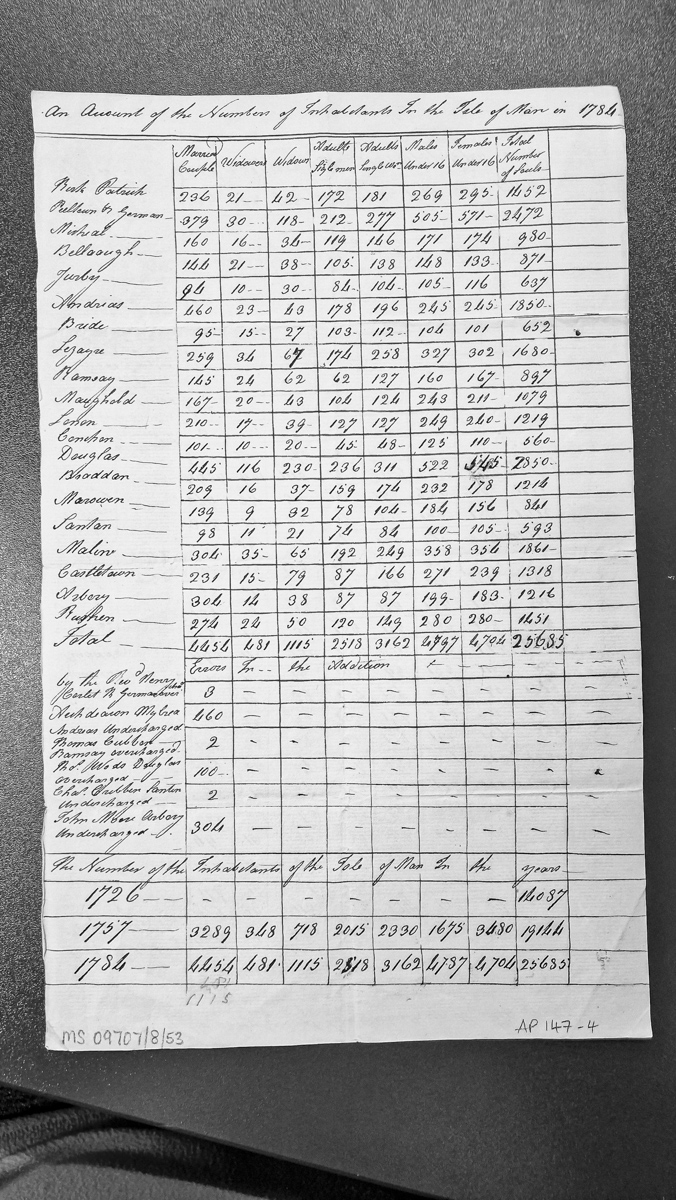 An Account of the Numbers of Inhabitants In the Isle of Man in 1784
Married Couple Widowers Widows Adults Single men Adults Single wo. Males Under 16 Females Under 16 Total Number of Souls
Kirk Patrick 236 21 42 172 181 269 295 1452
Peeltown & German 379 30 118 212 277 505 571 2472
Micheal 160 16 34 119 146 171 174 980
Bellaugh 144 21 38 105 138 148 133 871
Jurby 94 10 30 84 104 105 116 637
Andrias 460 23 43 178 196 245 245 1850
Bride 95 15 27 103 112 104 101 652
Lezayre 259 34 67 174 258 327 302 1680
Ramsay 145 24 62 62 127 160 167 897
Maughold 167 20 43 104 124 243 211 1079
Lonon 210 17 39 127 127 249 240 1219
Conchon 101 10 20 45 48 125 110 560
Douglas 445 116 230 236 311 522 545 2850
Braddan 209 16 37 159 174 232 178 1214
Marowen 139 9 32 78 104 184 156 841
Santan 98 11 21 74 84 100 105 593
Malew 304 35 65 192 249 358 354 1861
Castletown 231 15 79 87 166 271 239 1318
Arbory 304 14 38 87 87 199 183 1216
Rushen 274 24 50 120 149 280 280 1451
Total 4454 481 1115 2518 3162 4797 4704 25685
Errors In the Addition
by the Revd Henry
Corlet K German over 3
Archdeacon Mylrea
Andrias Undercharged 460
Thomas Cubbon
Ramsay overcharged 2
Thos. Woods Douglas
overcharged 100
Chas. Cribbin Santin
Undercharged 2
John Moore Arbory
Undercharged 304
The Number of the Inhabitants of the Isle of Man In the years
1726 – – – – – – – 14087
1757 3289 348 718 2015 2330 1675 3480 19144
1784 4454 481 1115 2518 3162 4787 4704 25685
481
1115
MS 09707/8/53
AP 147-4